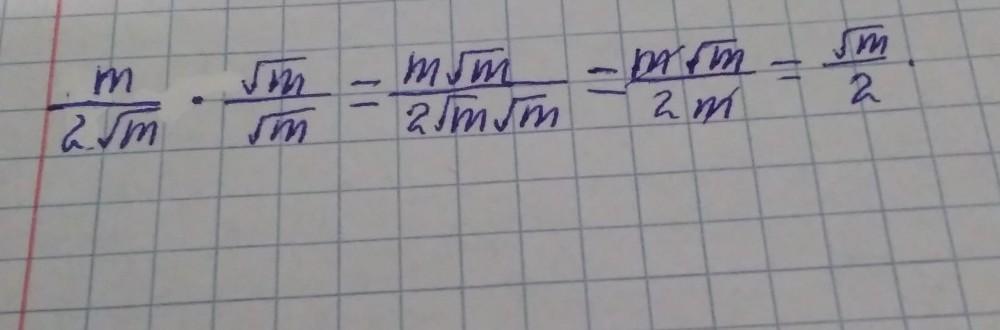 m/(2√m) · √m/√m = m√m/(2√m√m) = m√m/(2m) = √m/2.